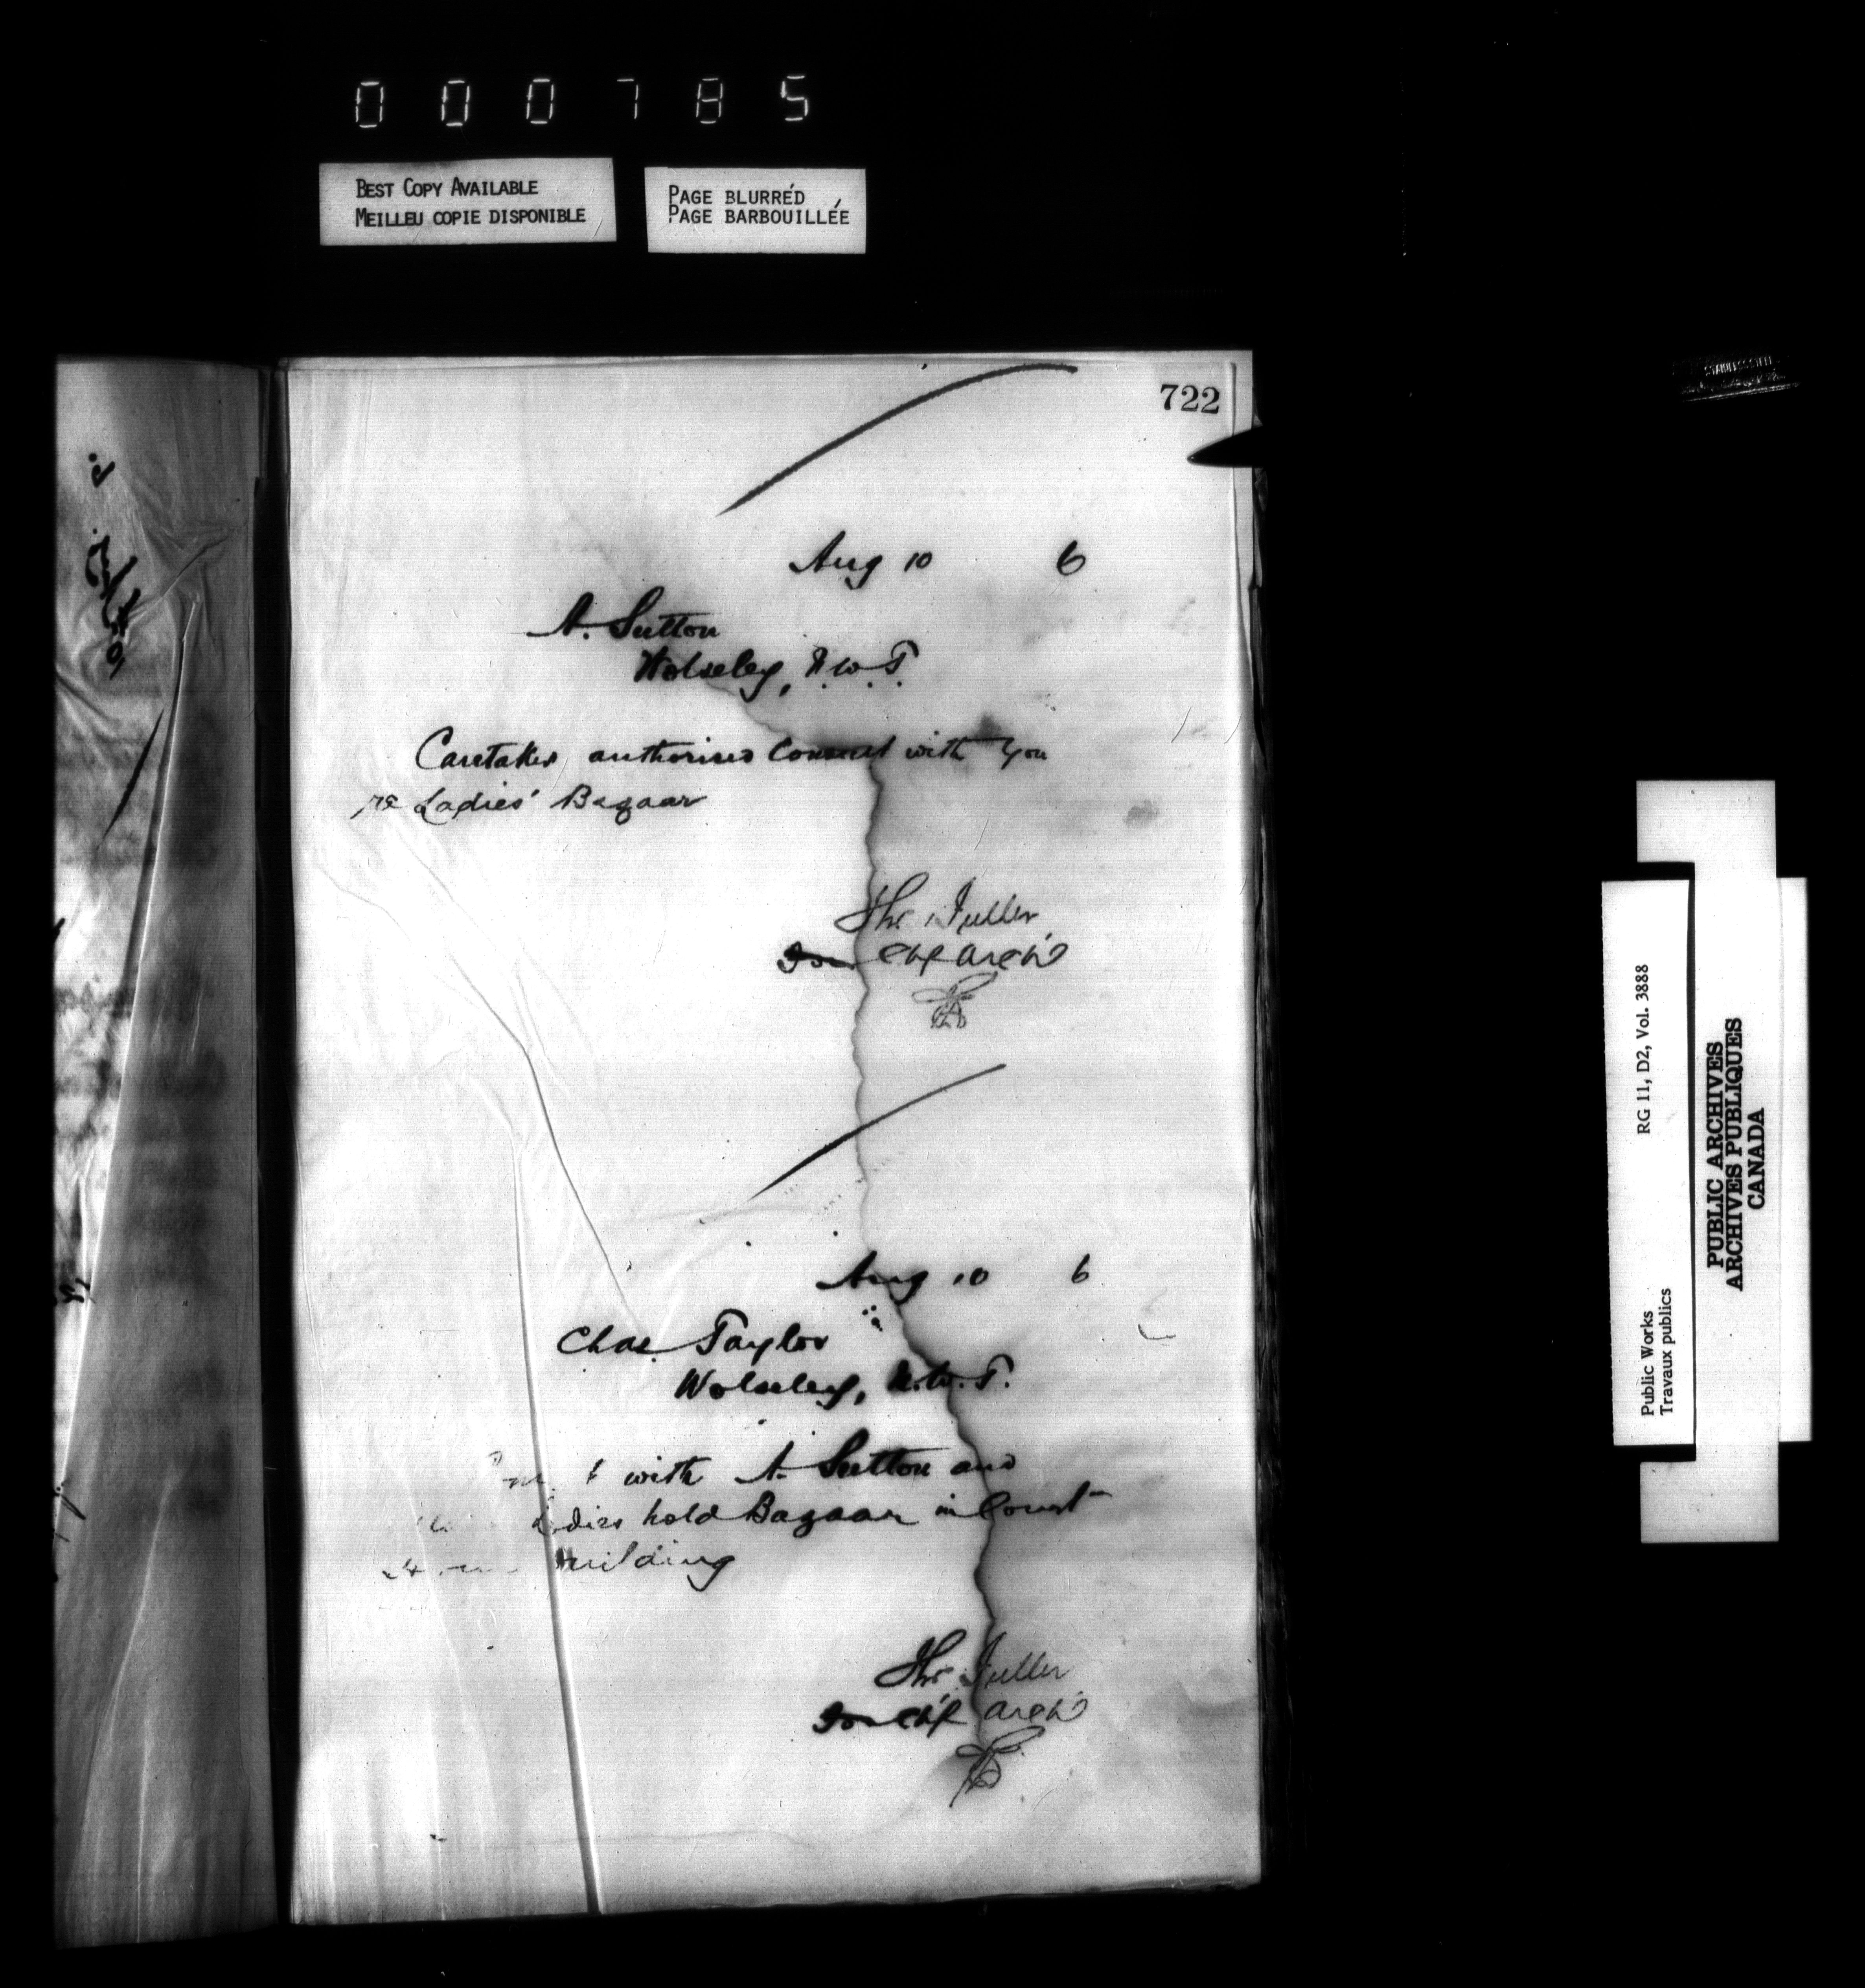 000785
BEST COPY AVAILABLE
MEILLEU COPIE DISPONIBLE
PAGE BLURRÉD
PAGE BARBOUILLÉE
722
Aug 10 6
A. Sutton
Wolseley, N.W.T.
Caretaker authorised Consult with you
re Ladies' Bazaar
Tho. Fuller
Chf Arch't
Aug 10 6
Chas. Taylor
Wolseley, N.W.T.
with A. Sutton and
Ladies hold Bazaar in Court
Building
Tho. Fuller
Chf Arch't
RG 11, D2, Vol. 3888
Public Works
Travaux publics
PUBLIC ARCHIVES
ARCHIVES PUBLIQUES
CANADA